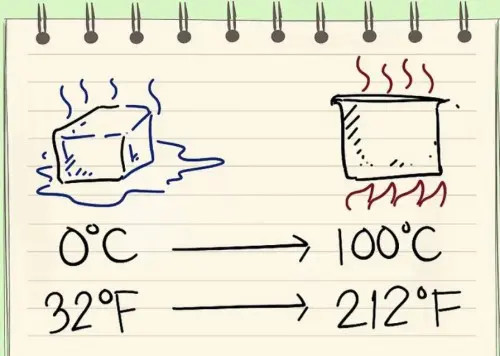 0°C → 100°C
32°F → 212°F